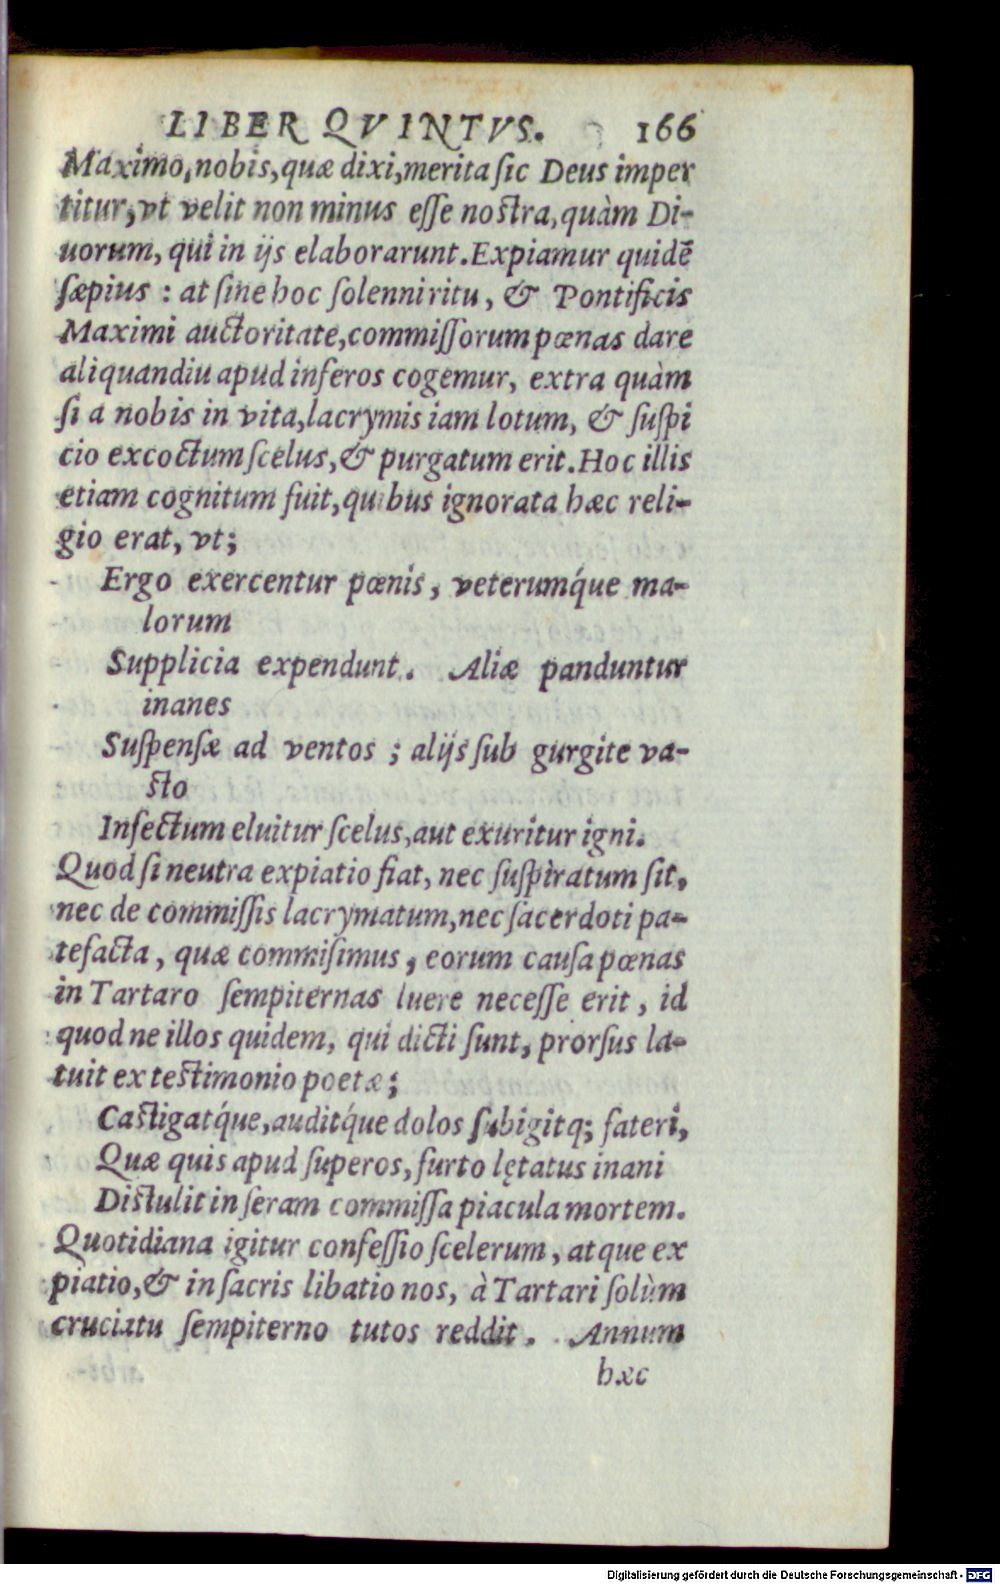 LIBER QVINTVS. 166
Maximo, nobis, quæ dixi, merita ſic Deus imper
titur, vt velit non minus eſſe noſtra, quàm Di-
uorum, qui in ijs elaborarunt. Expiamur quidē
ſæpius : at ſine hoc ſolenni ritu, & Pontificis
Maximi auctoritate, commiſſorum pœnas dare
aliquandiu apud inferos cogemur, extra quàm
ſi a nobis in vita, lacrymis iam lotum, & ſuſpi
cio excoctum ſcelus, & purgatum erit. Hoc illis
etiam cognitum fuit, quibus ignorata hæc reli-
gio erat, vt;
Ergo exercentur pœnis, veterumq́ue ma-
lorum
Supplicia expendunt. Aliæ panduntur
inanes
Suſpenſæ ad ventos ; alijs ſub gurgite va-
ſto
Infectum eluitur ſcelus, aut exuritur igni.
Quod ſi neutra expiatio fiat, nec ſuſpiratum ſit,
nec de commiſſis lacrymatum, nec ſacerdoti pa-
tefacta, quæ commiſimus, eorum cauſa pœnas
in Tartaro ſempiternas luere neceſſe erit, id
quod ne illos quidem, qui dicti ſunt, prorſus la-
tuit ex teſtimonio poetæ;
Caſtigatq́ue, auditq́ue dolos ſubigitq; fateri,
Quæ quis apud ſuperos, furto lętatus inani
Diſtulit in ſeram commiſſa piacula mortem.
Quotidiana igitur confeſſio ſcelerum, atque ex
piatio, & in ſacris libatio nos, à Tartari ſolùm
cruciatu ſempiterno tutos reddit. Annum
hæc
Digitalisierung gefördert durch die Deutsche Forschungsgemeinschaft - DFG